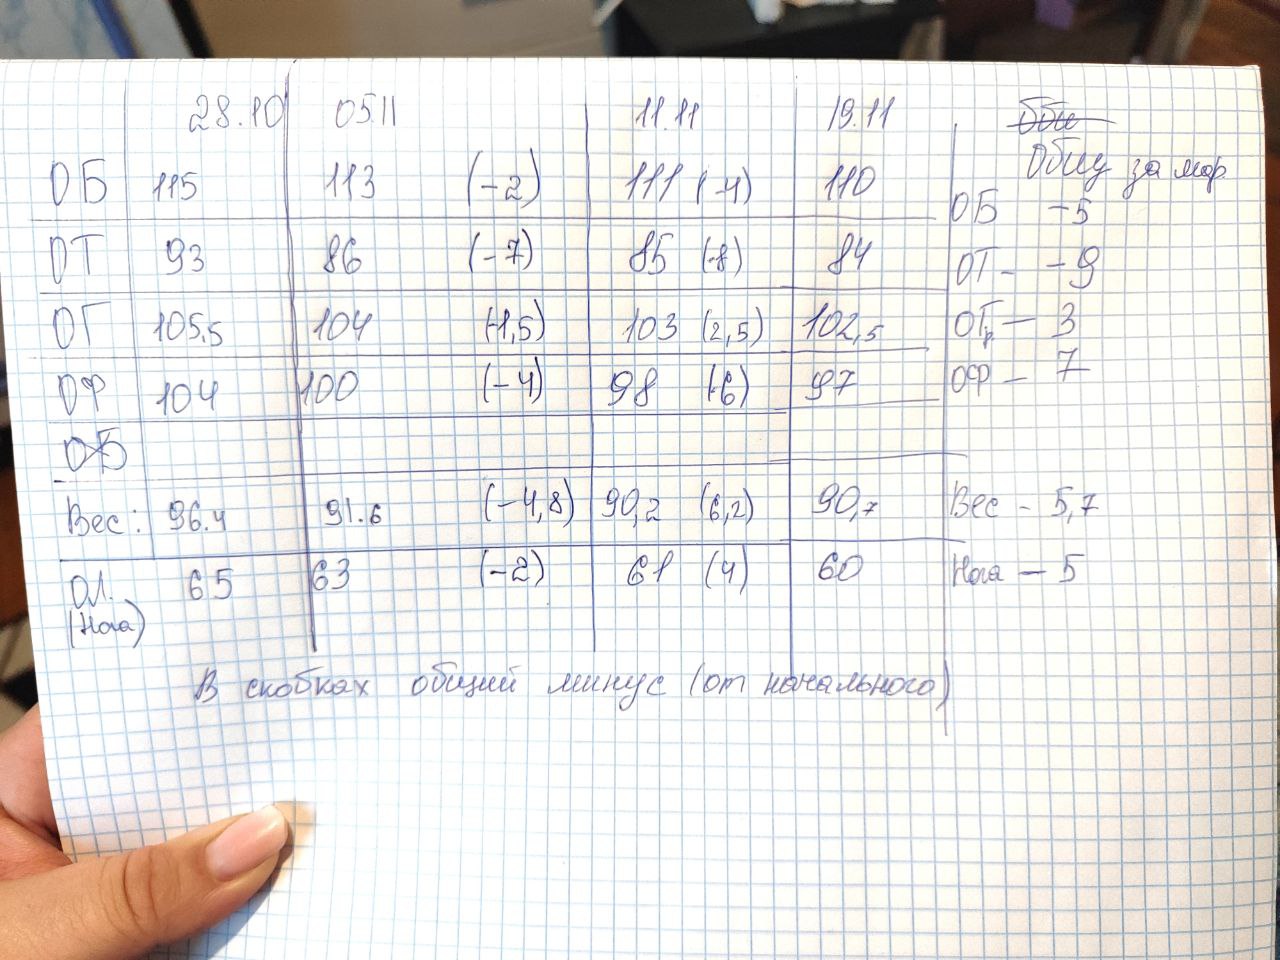 28.10 05.11 11.11 19.11
Общу за мар.
ОБ 115 113 (-2) 111 (-4) 110 ОБ -5
ОТ 93 86 (-7) 85 (-8) 84 ОТ - -9
ОГ 105,5 104 (-1,5) 103 (2,5) 102,5 ОГр - 3
ОФ 104 100 (-4) 98 (-6) 97 ОФ - 7
ОБ
Вес: 96.4 91.6 (-4,8) 90,2 (6,2) 90,7 Вес - 5,7
ОЛ. 65 63 (-2) 61 (4) 60 Нога - 5
(Нога)
В скобках общий минус (от начального)